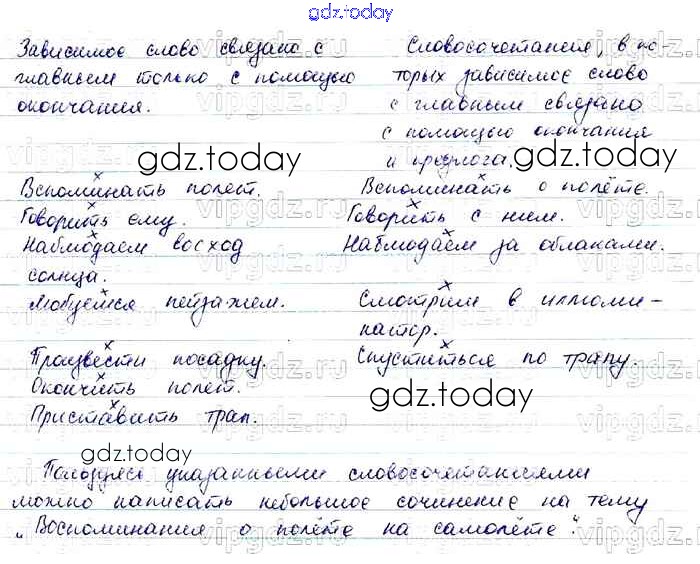 gdz.today
Зависимое слово связано с
главным только с помощью
окончания.
Словосочетания, в ко-
торых зависимое слово
с главным связано
с помощью окончания
и предлога.
gdz.today
gdz.today
Вспоминать полёт.
Вспоминать о полёте.
Говорить ему.
Говорить с ним.
Наблюдаем восход
солнца.
Наблюдаем за облаками.
Любуемся пейзажем.
Смотрим в иллюми-
натор.
Произвести посадку.
Спуститься по трапу.
Окончить полёт.
Приставить трап.
gdz.today
gdz.today
Пользуясь указанными словосочетаниями
можно написать небольшое сочинение на тему
„Воспоминания о полёте на самолёте“.
vipgdz.ru